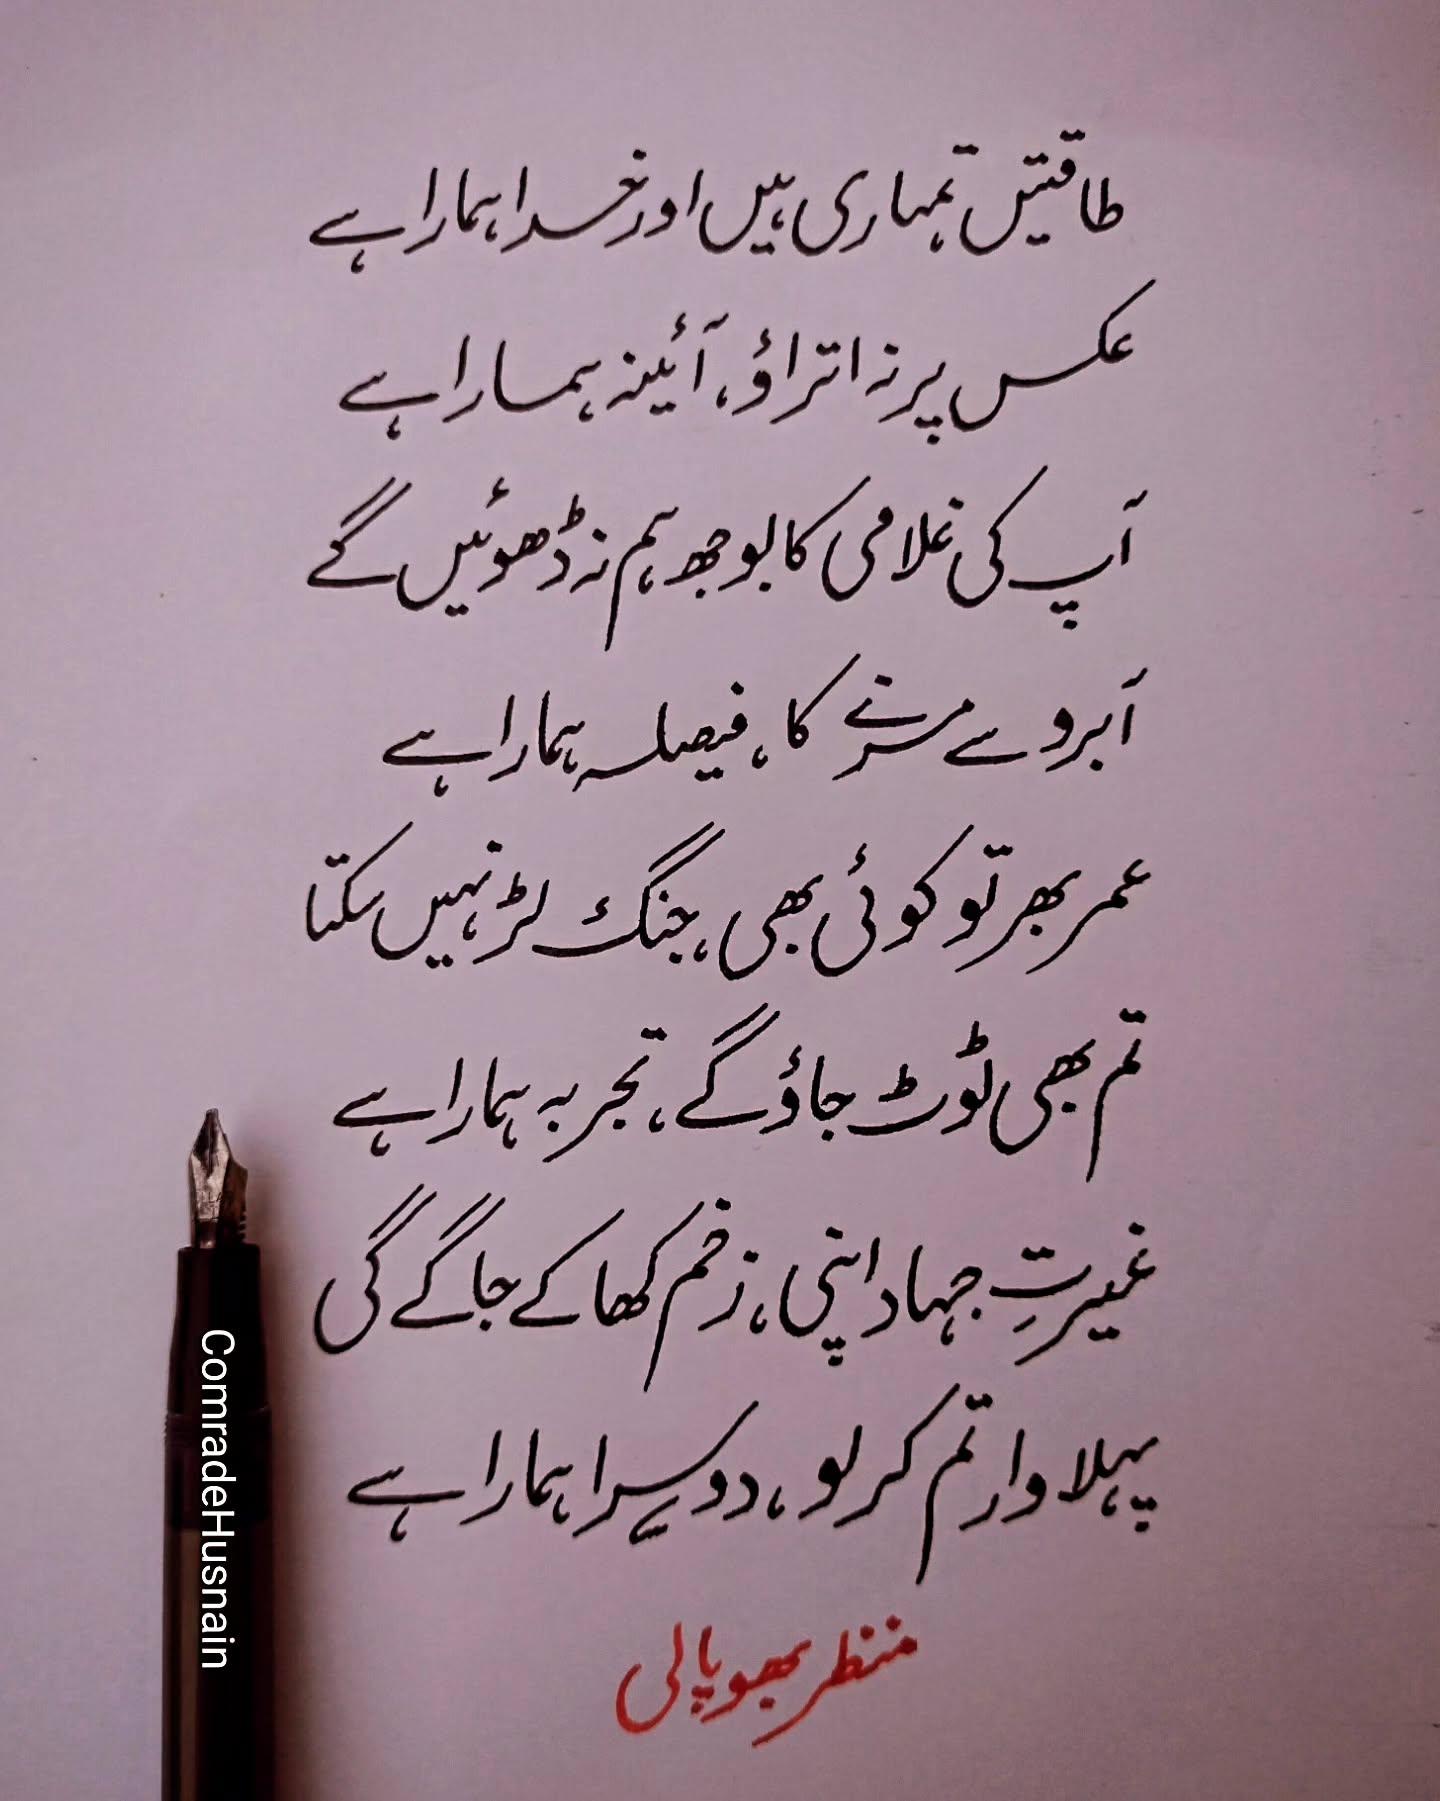 طاقتیں تمہاری ہیں اور خدا ہمارا ہے
عکس پر نہ اتراؤ، آئینہ ہمارا ہے
آپ کی غلامی کا بوجھ ہم نہ ڈھوئیں گے
آبرو سے مرنے کا، فیصلہ ہمارا ہے
عمر بھر تو کوئی بھی، جنگ لڑ نہیں سکتا
تم بھی ٹوٹ جاؤ گے، تجربہ ہمارا ہے
غیرتِ جہاد اپنی، زخم کھا کے جاگے گی
پہلا وار تم کر لو، دوسرا ہمارا ہے
منظر بھوپالی
ComradeHusnain